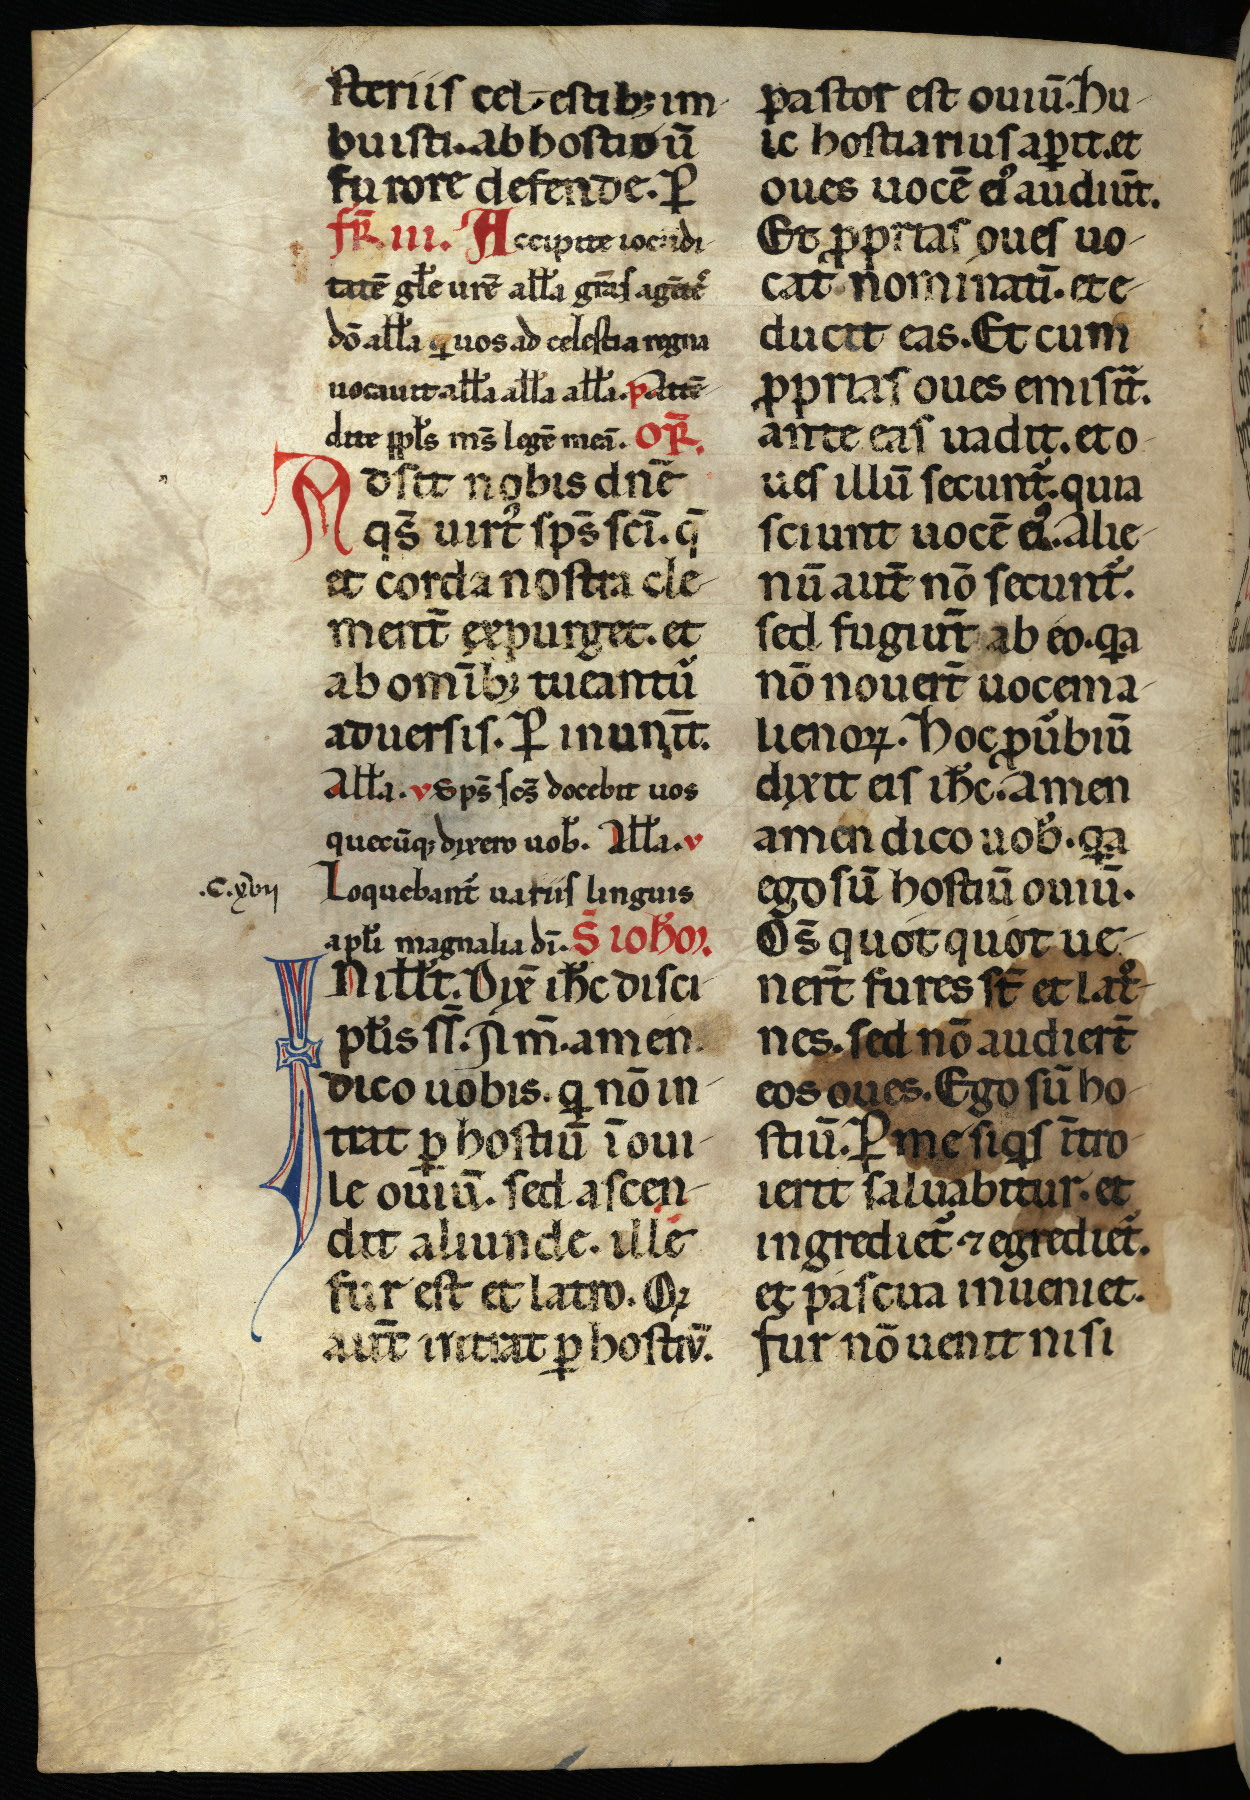 steriis cel-estibꝫ im-
buisti. ab hostiū
furore defende. P̲
fr̄. iii. Accipite iocūdi-
tatē gl̄e urē all̄a gr̄as agētes
dō all̄a qͥ uos ad celestia regna
uocauit all̄a all̄a all̄a. p. Attē-
dite ppl̄s ms̄ legē meā. Or̄.
Adsit nobis dn̄e
qs̄ uirtꝰ sps̄ sc̄i. q̄
et corda nostra cle-
ment̄ expurget. et
ab om̄ibꝫ tueantur
aduersis. P̲ in unit̄.
All̄a. v Sps̄ sc̄s docebit uos
quecūqꝫ dixero uob̄. All̄a. v
.C.xvii
Loquebant̄ uariis linguis
apl̄i magnalia dī. S̄ ioh̄oꝫ.
IN ill̄ t̄. Dix̄ ih̄c disci-
pl̄is s̄s̄. Am̄. amen
dico uobis. qͥ nō in-
trat ꝑ hostiū ī oui-
le ouiū. sed ascen-
dit aliunde. ille
fur est et latro. Qͥ
aut̄ intrat ꝑ hostiū.
pastor est ouiū. hu-
ic hostiarius aperit. et
oues uocē eiꝰ audiūt.
Et ꝓprias oues uo-
cat nominatī. et e-
ducit eas. Et cum
ꝓprias oues emisit̄.
ante eas uadit. et o-
ues illū secunt̄. quia
sciunt uocē eiꝰ. Alie-
nū aut̄ nō secunt̄.
sed fugiūt ab eo. qͥa
nō nouert̄ uocem a-
lienoꝝ. Hoc ꝓuerbiū
dixit eis ih̄c. Amen
amen dico uob̄. qͥa
ego sū hostiū ouiū.
Om̄s quot quot ue-
nert̄ fures st̄ et latͦ-
nes. sed nō audiert̄
eos oues. Ego sū ho-
stiū. P̲ me siqͥs ītro-
ierit saluabitur. et
ingrediet̄ ⁊ egrediet̄.
et pascua inueniet.
fur nō uenit nisi